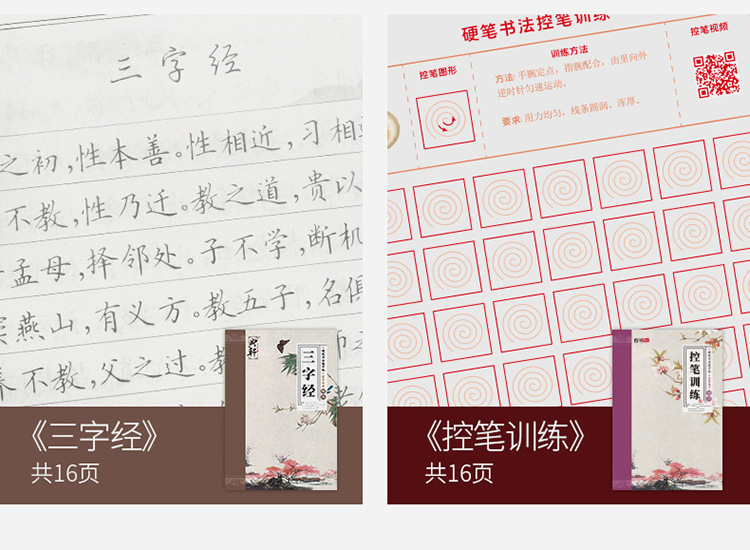 三字经
之初,性本善。性相近,习相
不教,性乃迁。教之道,贵以
孟母,择邻处。子不学,断机
燕山,有义方。教五子,名俱
不教,父之过。教
三字经
《三字经》
共16页
硬笔书法控笔训练
控笔图形
训练方法
方法:手腕定点,指腕配合,由里向外
逆时针匀速运动。
要求:用力均匀,线条圆润、浑厚。
控笔视频
控笔训练
《控笔训练》
共16页